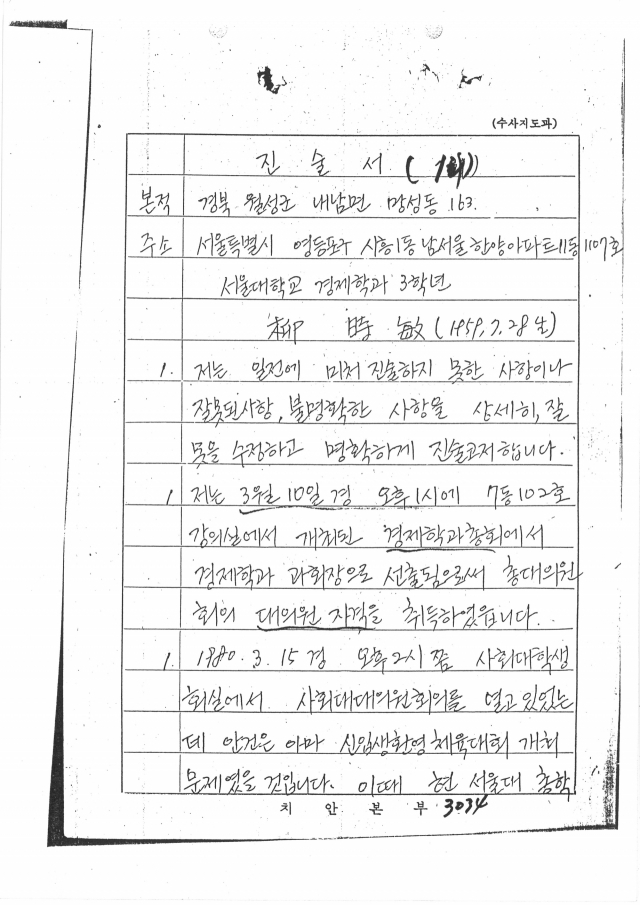 (수사지도과)
진 술 서 (1회)
본적 경북 월성군 내남면 망성동 163.
주소 서울특별시 영등포구 시흥1동 남서울한양아파트11동1107호
서울대학교 경제학과 3학년
柳 時 敏 (1959. 7. 28 생)
1. 저는 일전에 미처 진술하지 못한 사항이나
잘못된사항, 불명확한 사항을 상세히, 잘
못을 수정하고 명확하게 진술코저합니다.
1 저는 3월 10일 경 오후1시에 7동102호
강의실에서 개최된 경제학과총회에서
경제학과 과회장으로 선출됨으로써 총대의원
회의 대의원 자격을 취득하였읍니다.
1. 1980. 3. 15 경 오후2시 쯤 사회대학생
회실에서 사회대대의원회의를 열고 있었는
데 안건은 아마 신입생환영체육대회 개최
문제였을 것입니다. 이때 현 서울대 총학
치 안 본 부 3034